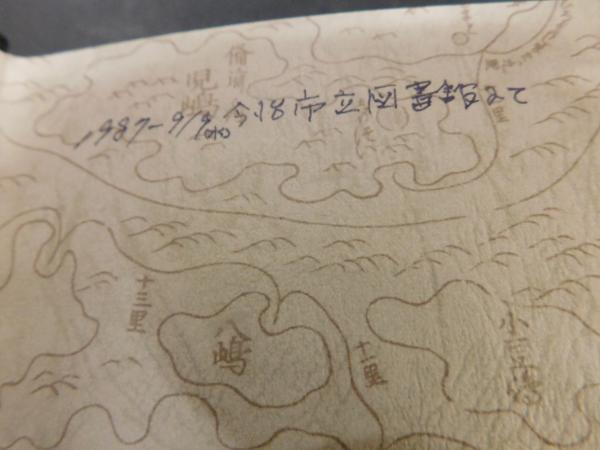 備前
児嶋
1987-9/9(水)今治市立図書館みて
里
十三里
八嶋
十一里
小豆嶋